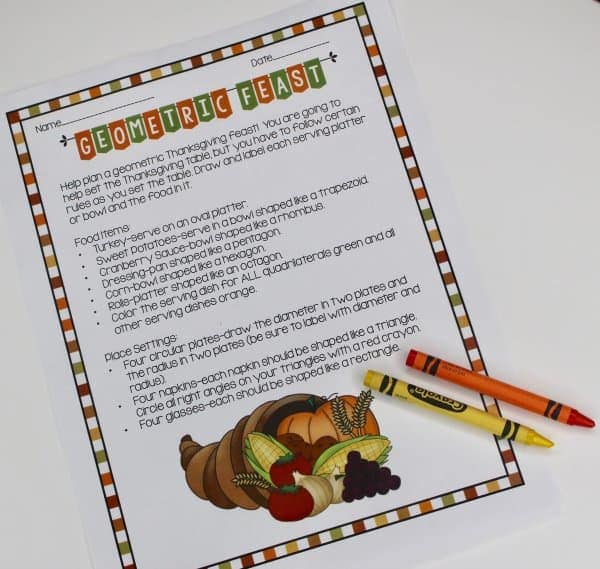 Name
Date
GEOMETRIC FEAST
Help plan a geometric Thanksgiving feast! You are going to
help set the Thanksgiving table, but you have to follow certain
rules as you set the table. Draw and label each serving platter
or bowl and the food in it.
Food Items:
• Turkey-serve on an oval platter.
• Sweet Potatoes-serve in a bowl shaped like a trapezoid.
• Cranberry Sauce-bowl shaped like a rhombus.
• Dressing-pan shaped like a pentagon.
• Corn-bowl shaped like a hexagon.
• Rolls-platter shaped like an octagon.
• Color the serving dish for ALL quadrilaterals green and all
other serving dishes orange.
Place Settings:
• Four circular plates-draw the diameter in two plates and
the radius in two plates (be sure to label with diameter and
radius).
• Four napkins-each napkin should be shaped like a triangle.
Circle all right angles on your triangles with a red crayon.
• Four glasses-each should be shaped like a rectangle.
Crayola